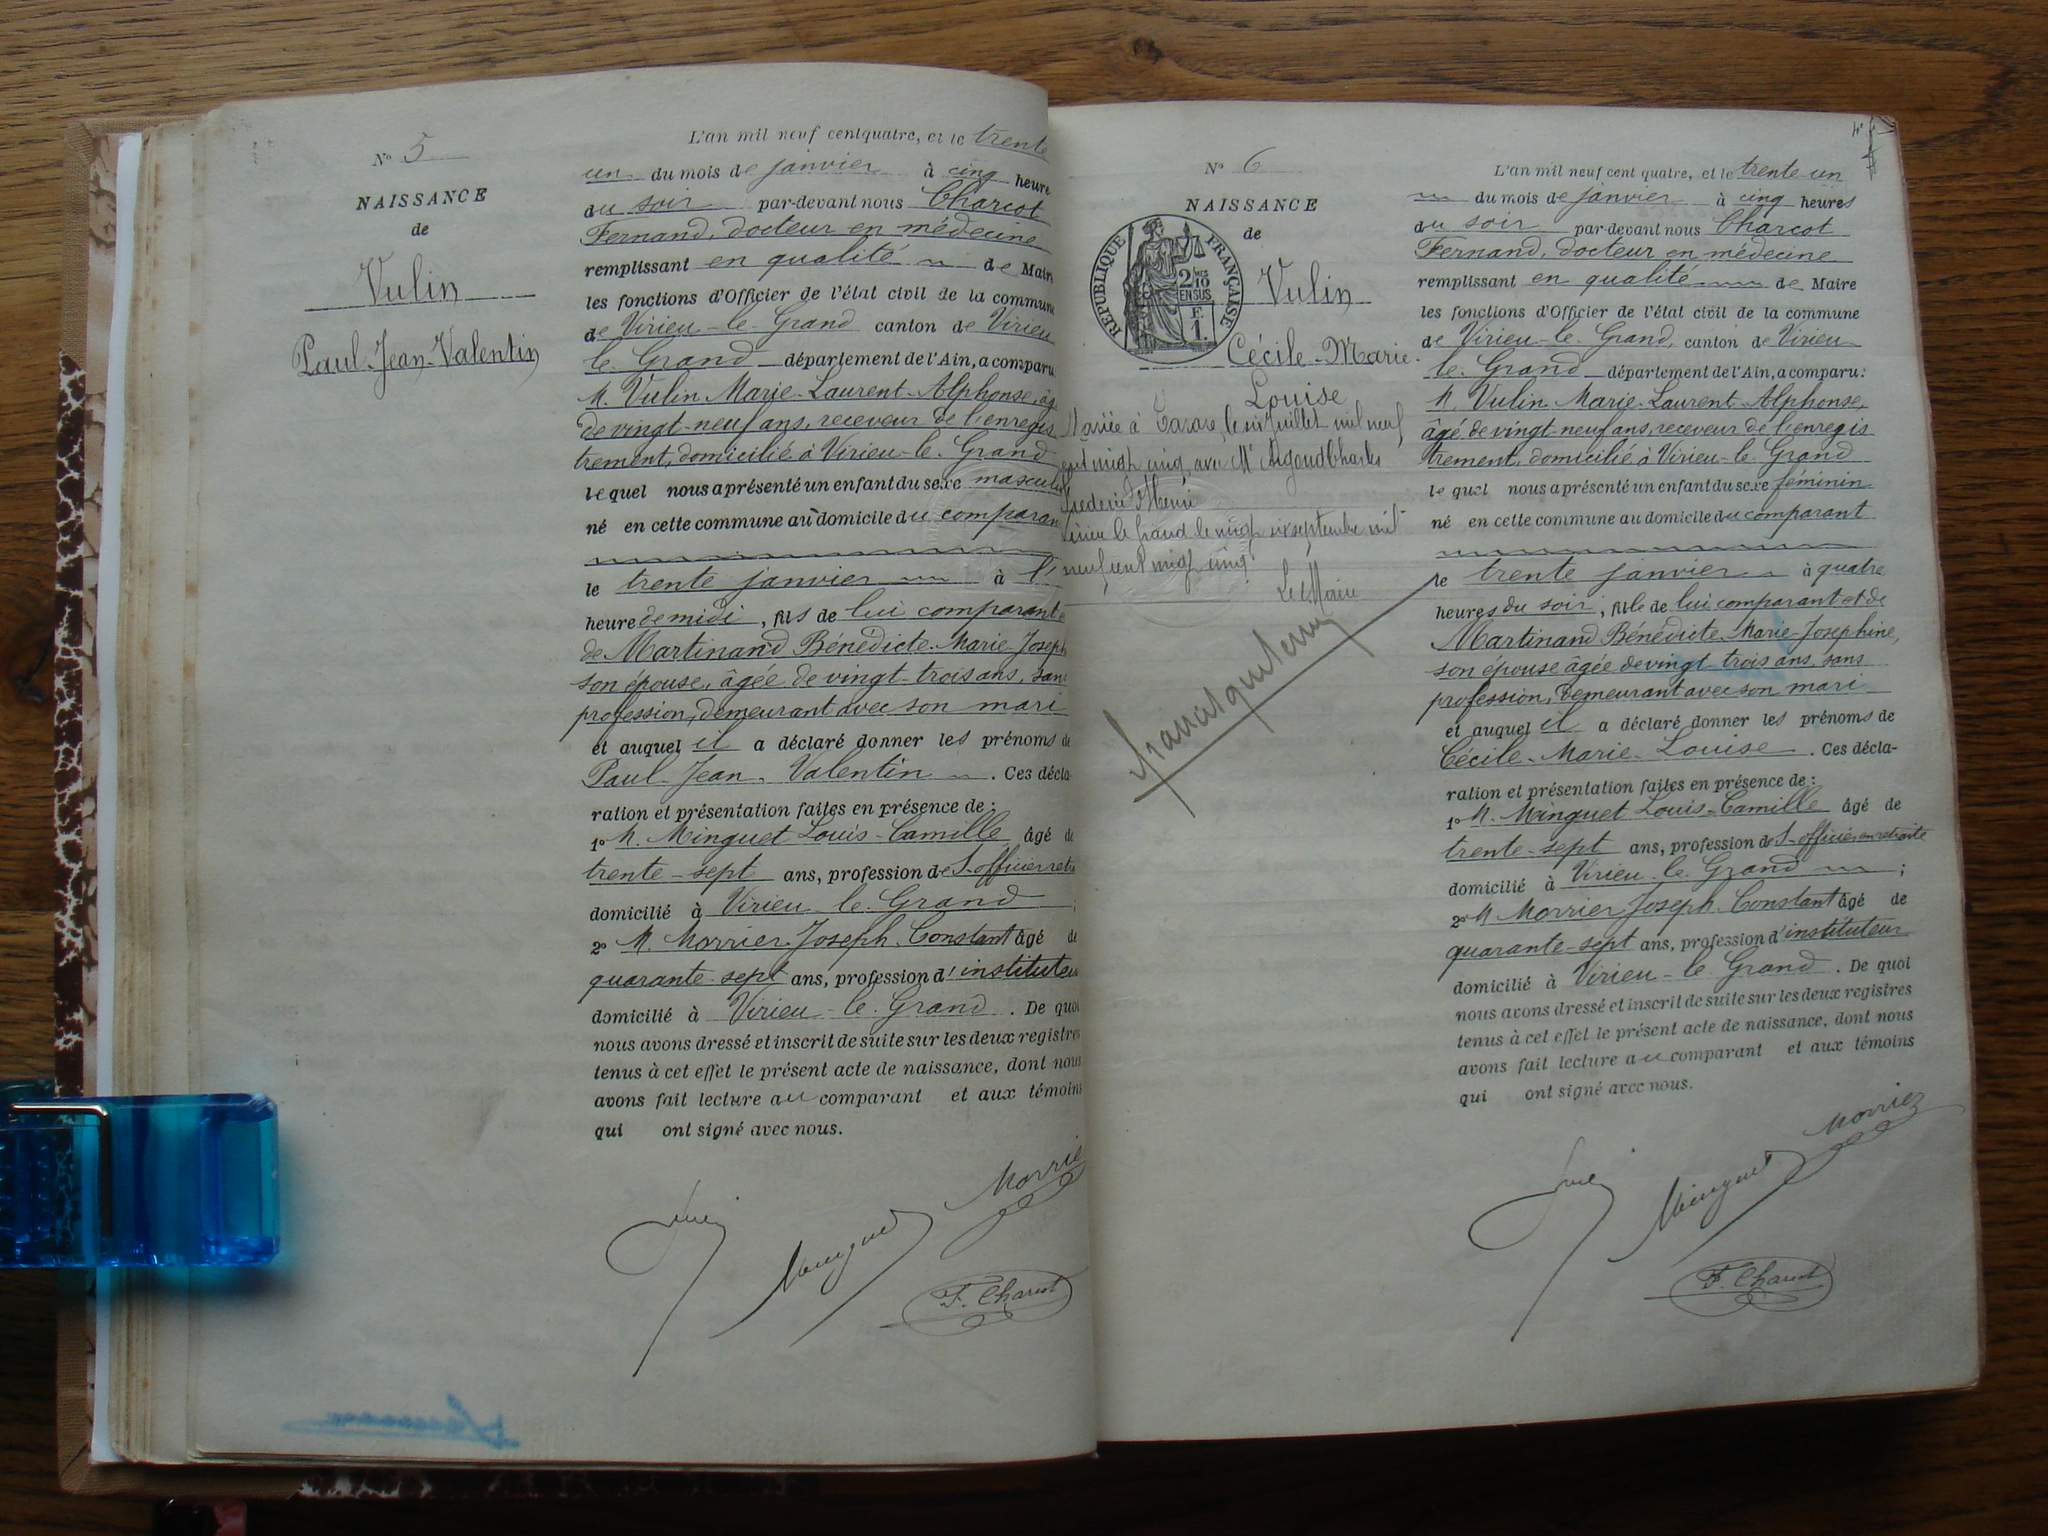 N° 5
NAISSANCE
de
Vulin
Paul-Jean-Valentin
L'an mil neuf cent quatre, et le trente
un du mois de janvier à cinq heure
du soir par-devant nous Charcot
Fernand, docteur en médecine
remplissant en qualité de Mair
les fonctions d'Officier de l'état civil de la commune
de Virieu-le-Grand canton de Virieu
le-Grand département de l'Ain, a comparu
M. Vulin Marie-Laurent-Alphonse, âg
de vingt-neuf ans, receveur de l'enregis
trement, domicilié à Virieu-le-Grand
lequel nous a présenté un enfant du sexe masculin
né en cette commune au domicile du comparan
le trente janvier à
heure de midi, fils de lui comparant
de Martinand Bénédicte-Marie-Joseph
son épouse, âgée de vingt-trois ans, san
profession, demeurant avec son mari
et auquel il a déclaré donner les prénoms de
Paul-Jean-Valentin. Ces décla
ration et présentation faites en présence de :
1° M. Minguet Louis-Camille âgé de
trente-sept ans, profession de S-officier retr
domicilié à Virieu-le-Grand ;
2° M. Morrier Joseph-Constant âgé de
quarante-sept ans, profession d'instituteu
domicilié à Virieu-le-Grand. De quoi
nous avons dressé et inscrit de suite sur les deux registres
tenus à cet effet le présent acte de naissance, dont nous
avons fait lecture au comparant et aux témoins
qui ont signé avec nous.
Morrie
Minguet
F. Charcot
N° 6
NAISSANCE
de
RÉPUBLIQUE FRANÇAISE
2/10
EN SUS
F.
1.
Vulin
Cécile-Marie-
Louise
Mariée à Tarare, le juillet mil neuf
cent vingt cinq avec Mr Charles
Frédéric Henri
Virieu le Grand le vingt six septembre mil
neuf cent vingt cinq
Le Maire
L'an mil neuf cent quatre, et le trente un
du mois de janvier à cinq heures
du soir par-devant nous Charcot
Fernand, docteur en médecine
remplissant en qualité de Maire
les fonctions d'Officier de l'état civil de la commune
de Virieu-le-Grand, canton de Virieu
le-Grand département de l'Ain, a comparu :
M. Vulin Marie-Laurent-Alphonse,
âgé de vingt-neuf ans, receveur de l'enregis
trement, domicilié à Virieu-le-Grand
lequel nous a présenté un enfant du sexe féminin
né en cette commune au domicile du comparant
le trente janvier à quatre
heures du soir, fille de lui comparant et de
Martinand Bénédicte-Marie-Josephine,
son épouse âgée de vingt-trois ans, sans
profession, demeurant avec son mari
et auquel il a déclaré donner les prénoms de
Cécile-Marie-Louise. Ces décla-
ration et présentation faites en présence de :
1° M. Minguet Louis-Camille âgé de
trente-sept ans, profession de S-officier en retraite
domicilié à Virieu-le-Grand ;
2° M Morrier Joseph-Constant âgé de
quarante-sept ans, profession d'instituteur
domicilié à Virieu-le-Grand. De quoi
nous avons dressé et inscrit de suite sur les deux registres
tenus à cet effet le présent acte de naissance, dont nous
avons fait lecture au comparant et aux témoins
qui ont signé avec nous.
Morrier
Minguet
F. Charcot